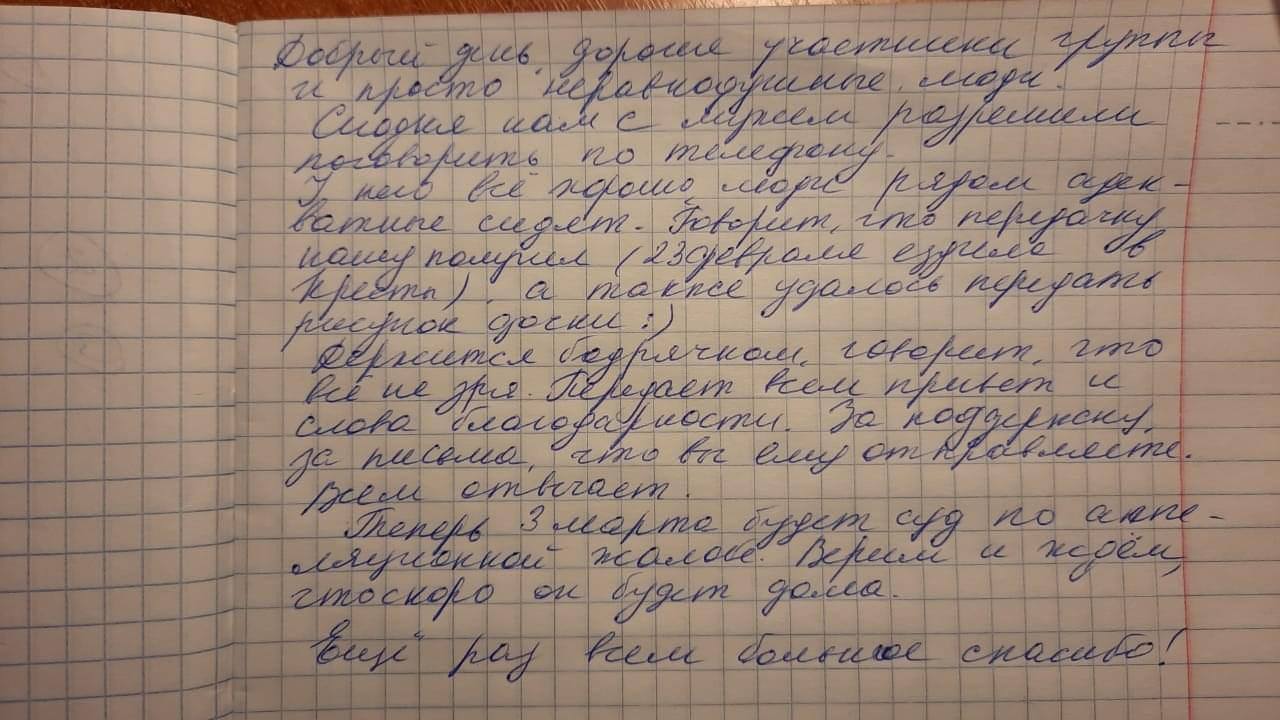 Добрый день, дорогие участники группы
и просто неравнодушные люди.
Сегодня нам с мужем разрешили
поговорить по телефону.
У него всё хорошо, люди рядом адек-
ватные сидят. Говорит, что передачку
нашу получил (23 февраля ездила в
Кресты), а также удалось передать
рисунок доски :)
Держится бодрячком, говорит, что
всё не зря. Передает всем привет и
слова благодарности. За поддержку,
за письма, что вы ему отправляете.
Всем отвечает.
Теперь 3 марта будет суд по аппе-
ляционной жалобе. Верим и ждём,
что скоро он будет дома.
Ещё раз всем большое спасибо!